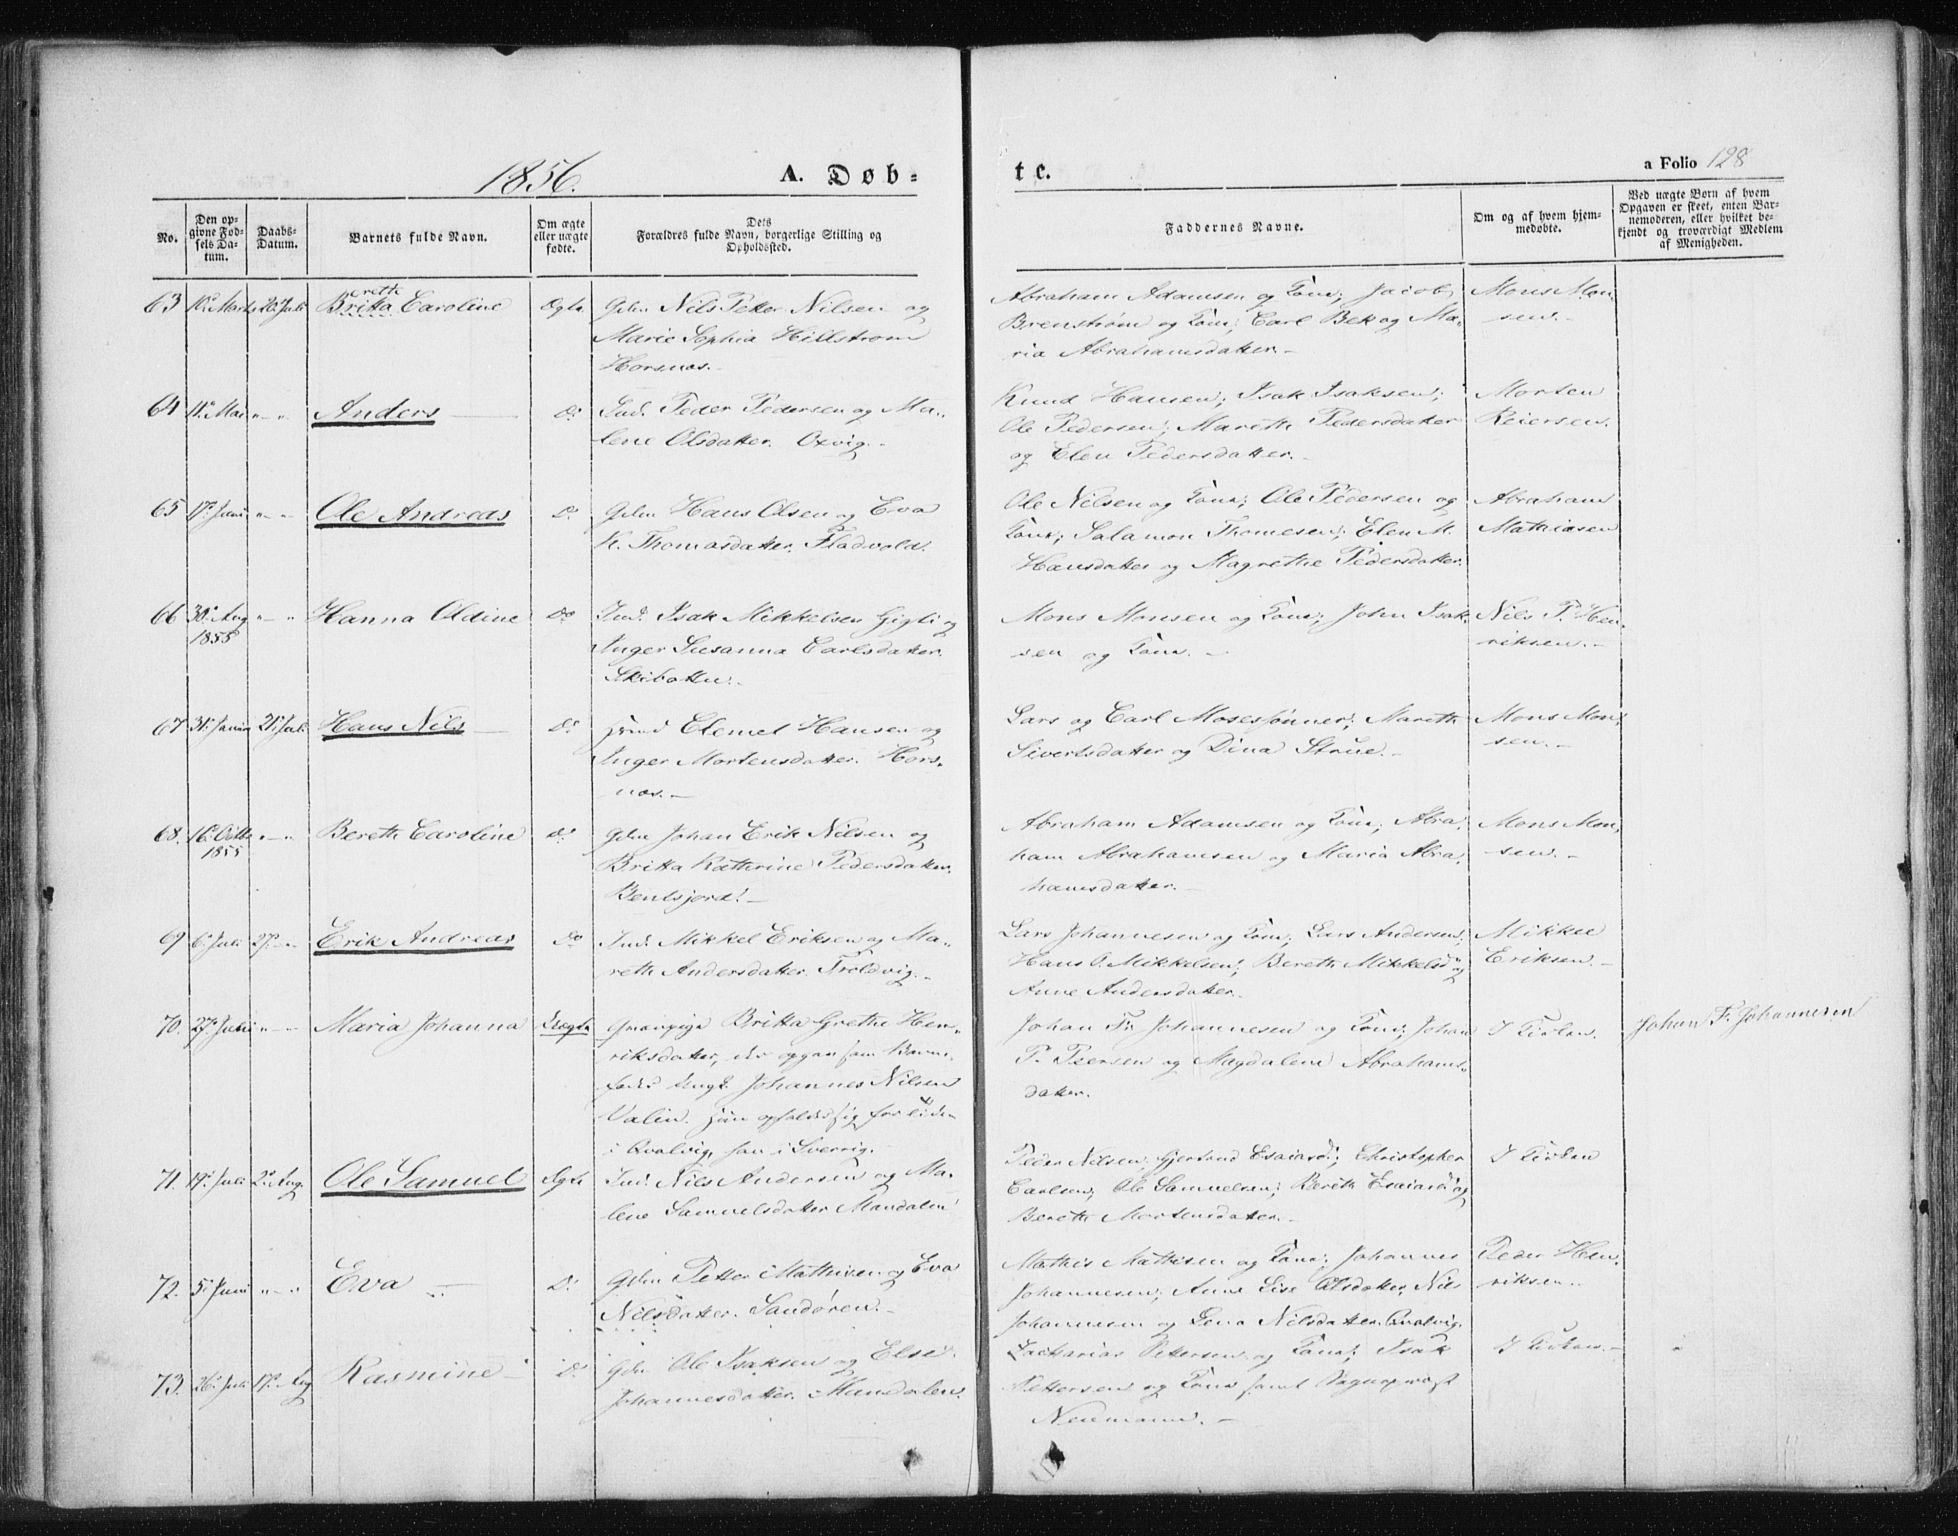 1856.
A. Døb=
te.
a Folio 128
No.
Den op=
givne Fød=
sels Da=
tum.
Daabs=
Datum.
Barnets fulde Navn.
Om ægte
eller uægte
fødte.
Dets
Forældres fulde Navn, borgerlige Stilling og
Opholdssted.
Faddernes Navne.
Om og af hvem hjem=
medøbte.
Ved uægte Børn af hvem
Opgaven er skeet, enten Bar=
nemoderen, eller hvilket be=
kjendt og troværdigt Medlem
af Menigheden.
63 10de Marts 20de Juli Britta Caroline Ægte Gdm Nils Peter Nilsen og
erette
Marie Sophia Hillstrom
Horsnæs.
Abraham Adamsen og Kone; Jacob
Brenstrøm og Kone; Carl Bek og Ma-
ria Abrahamsdatter.
Mons Mon-
sen.
64 11te Mai " " Anders Do Ind. Peder Pedersen og Ma-
lene Olsdatter. Oxvig.
Knud Hansen; Isak Isaksen;
Ole Pedersen; Marith Pedersdatter
og Elen Pedersdatter.
Morten
Reiersen.
65 17de Juni " " Ole Andreas Do Gdm Hans Olsen og Eva
K. Thomasdatter. Fladvold.
Ole Nilsen og Kone; Ole Pedersen og
Kone; Salamon Thomesen; Elen M.
Hansdatter og Magrethe Pedersdatter.
Abraham
Mathiasen
66 30te Aug " " Hanna Oldine Do Ind. Isak Mikkelsen Gigli og
1855
Inger Susanna Carlsdatter.
Skibotten.
Mons Monsen og Kone; John Isak-
sen og Kone.
Nils P. Hen-
riksen.
67 31te Januar 21de Juli Hans Nils Do Clemet Hansen og
Inger Mortensdatter. Hors-
næs.
Lars og Carl Mosessønner; Marith
Sivertsdatter og Dina Strøm.
Mons Mon-
sen.
68. 16de Octbr " " Bereth Caroline Do Gdm Johan Erik Nilsen og
1855
Britta Kathrine Pedersdatter.
Bentsjord.
Abraham Adamsen og Kone; Abra-
ham Abrahamsen og Maria Abra-
hamsdatter.
Mons Mon-
sen.
69 6te Juli 27de " Erik Andreas Do Ind. Mikkel Eriksen og Ma-
reth Andersdatter. Troldvig.
Lars Johannesen og Kone; Lars Andersen;
Hans P. Mikkelsen; Bereth Mikkelsd. og
Anne Andersdatter.
Mikkel
Eriksen.
70. 27de Juli " " Maria Johanna Uægte Britta Grethe Hen-
riksdatter, der opgav som Barne-
fader Ungk. Johannes Nilsen
Valin. Hun opholder sig for Tiden
i Qvalvig, han i Sverrig.
Johan Fr. Johannesen og Kone; Johan
P. Peersen og Magdalene Abrahams-
datter.
I Kirken.
Johan Fr. Johannesen
71. 19de Juli 2de Aug. Ole Samuel Ægte Ind. Nils Andersen og Ma-
lene Samuelsdatter Mandalen
Peder Nilsen, Gjertrud Esaiasd.; Christopher
Carlsen; Ole Samuelsen; Bereth Esaiasd. og
Bereth Mortensdatter.
I Kirken
72. 5te Juni " " Eva Do Gdm Petter Mathisen og Eva
Nilsdatter. Sandøren.
Mathis Mathisen og Kone; Johannes
Johannesen; Anne Lise Olsdatter, Nils
Johannesen og Lena Nilsdatter. Qvalvig.
Peder Hen-
riksen.
73. 26de Juli 17de Aug Rasmine Do Gdm Ole Isaksen og Else
Johannesdatter. Mandalen.
Zacharias Pettersen og Kone; Isak
Pettersen og Kone samt Sognepræst
Neumann.
I Kirken.
"